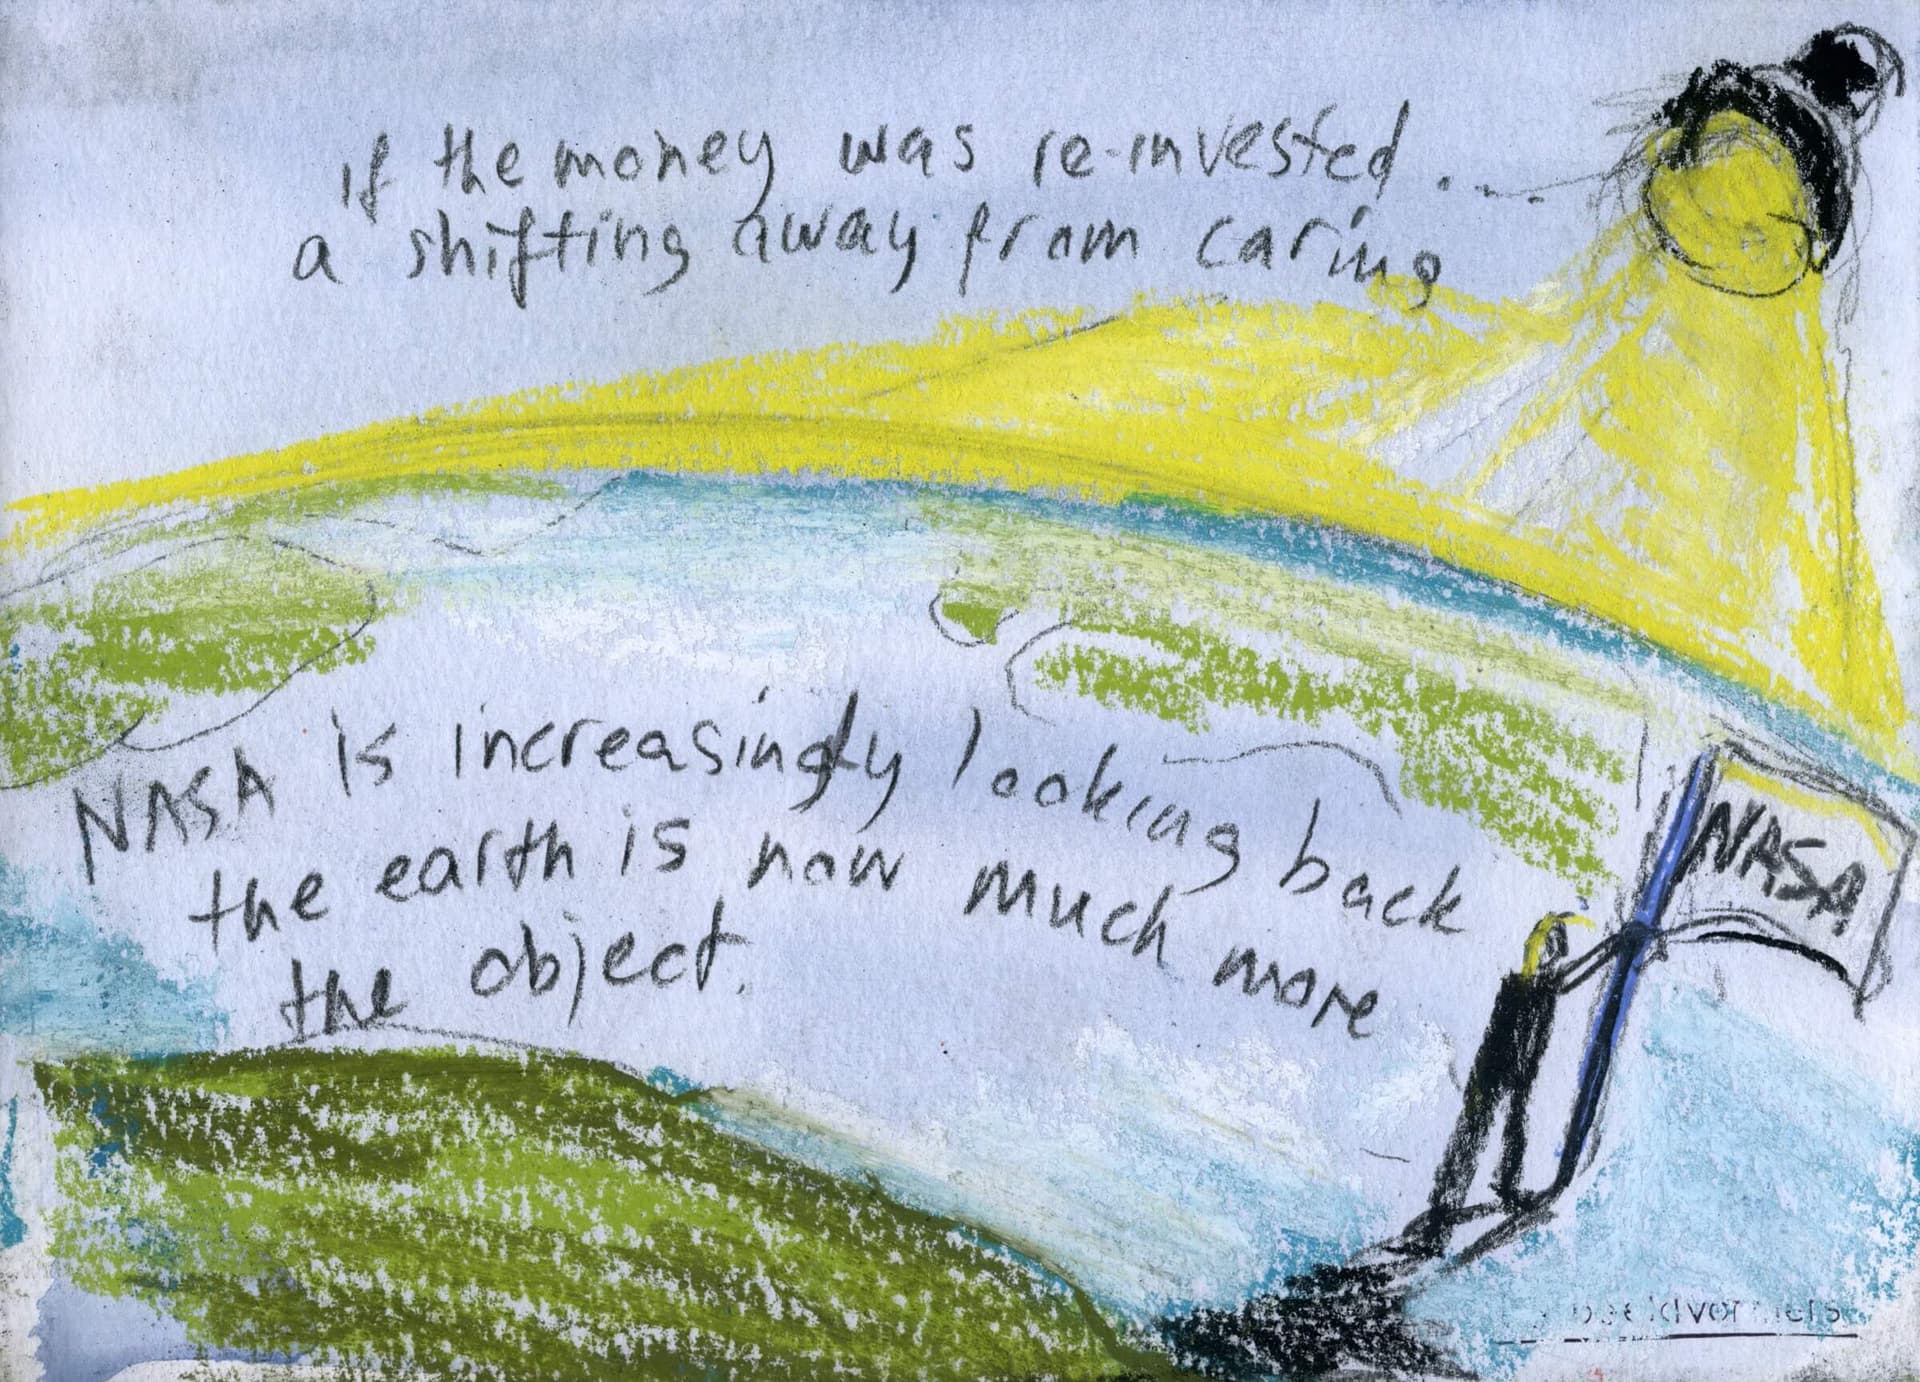 if the money was re-invested...
a shifting away from caring
NASA is increasingly looking back
the earth is now much more
the object.
NASA